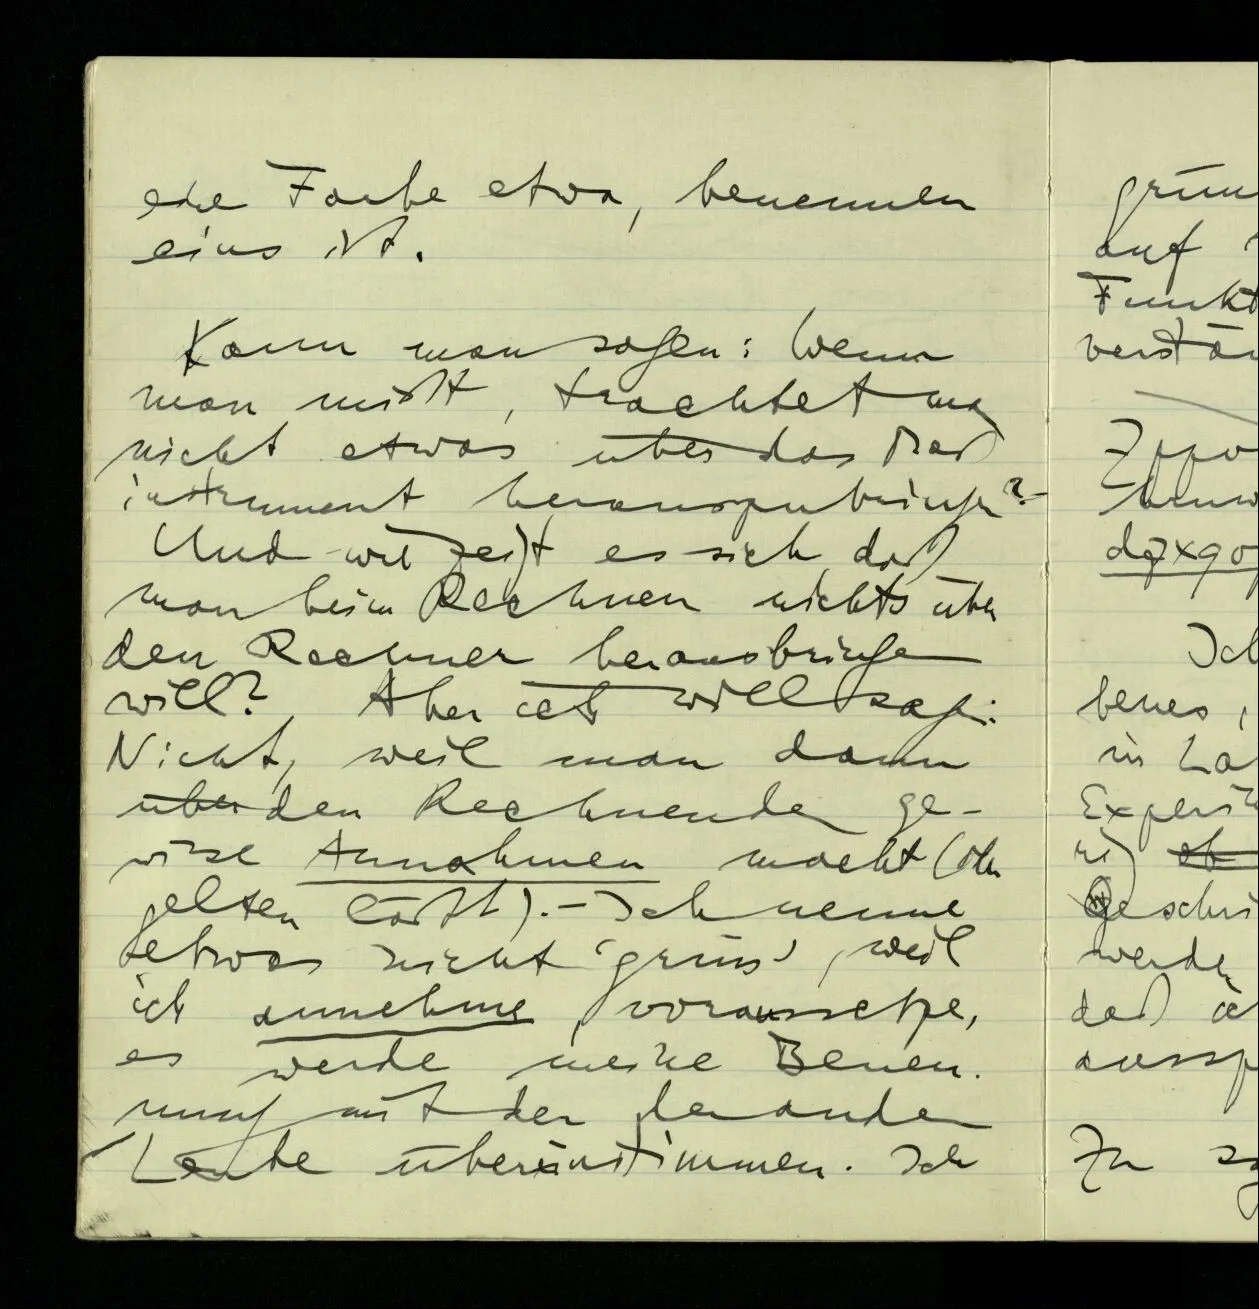 eine Farbe etwa, benennen
eins ist.
Kann man sagen: Wenn
man mißt, trachtet man
nicht etwas über das Maß
instrument herauszubringen? –
Und wie zeigt es sich, daß
man beim Rechnen nichts über
den Rechner herausbringen
will? Aber ich will sagen:
Nicht, weil man dann
über den Rechnenden ge-
wisse Annahmen macht (oder
gelten läßt). – Ich nenne
etwas nicht 'grün', weil
ich annehme, voraussetze,
es werde meine Benen-
nung mit der der andern
Leute übereinstimmen. Ich
grün
auf
Funkt
verstän
Ich
benes,
in La
Experi
ob
Geschri
werden
daß ic
aussp
Zu sa